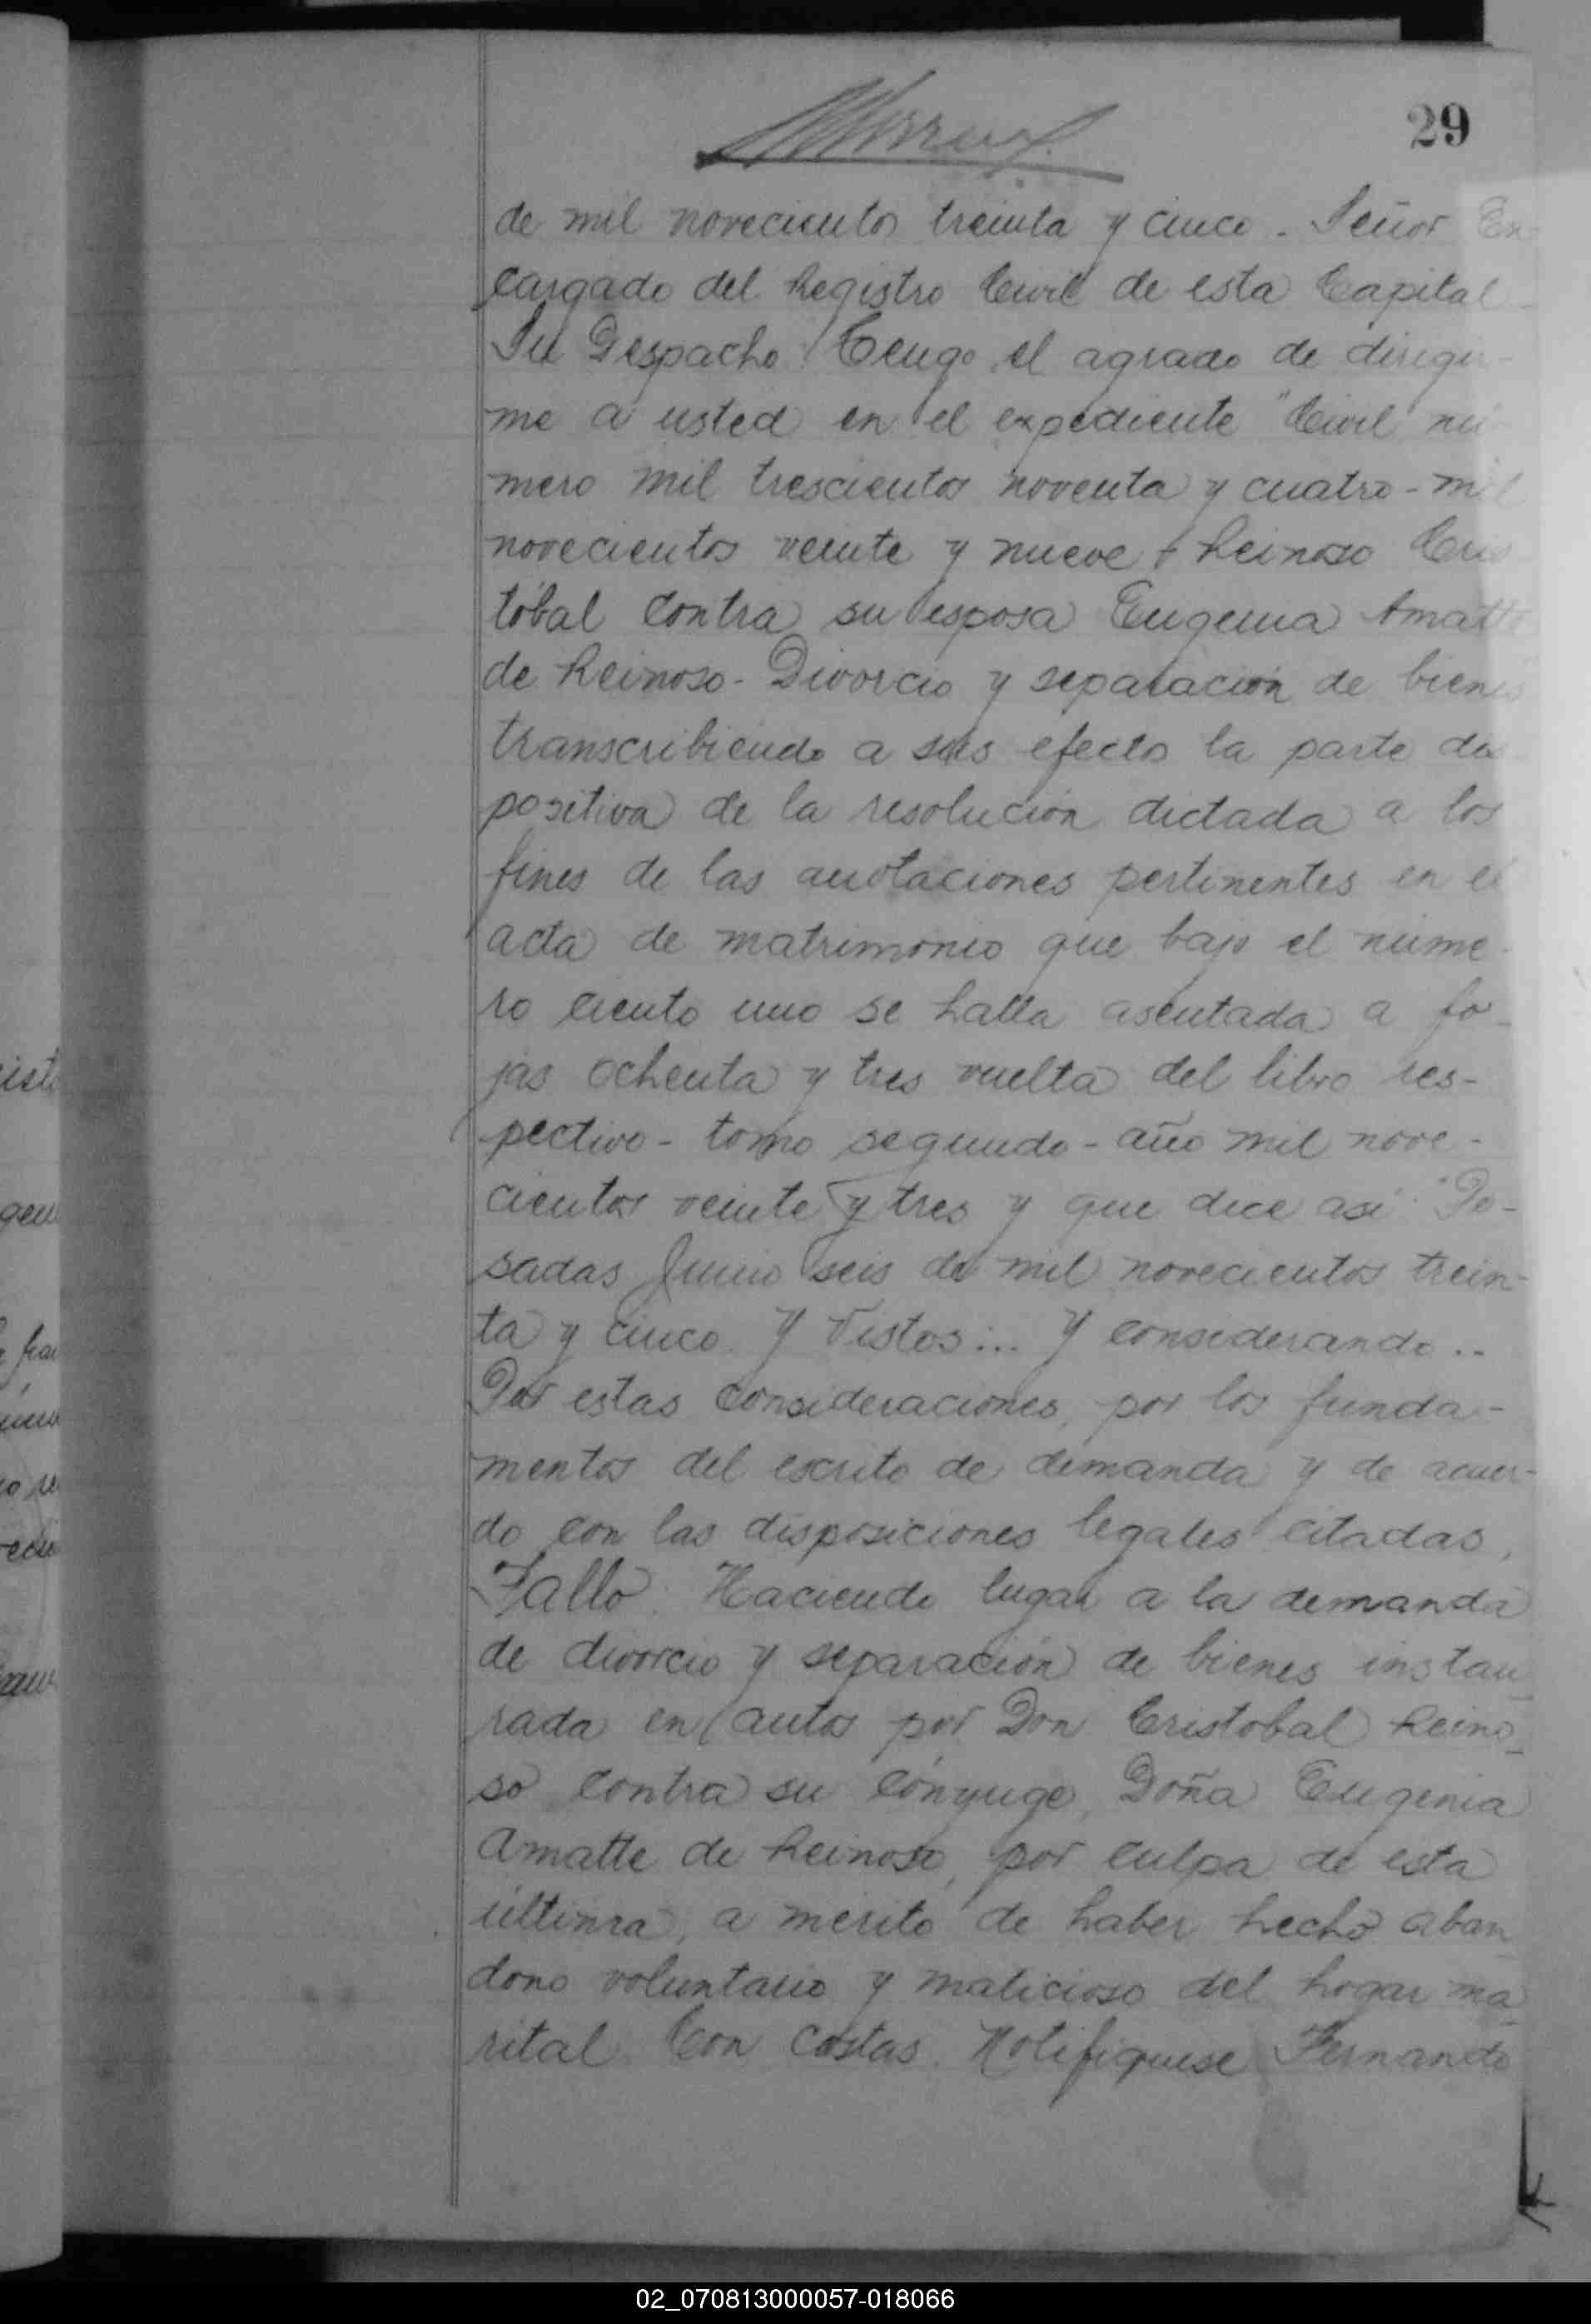 29
de mil novecientos treinta y cinco. Señor En-
cargado del Registro Civil de esta Capital
Su Despacho. Tengo el agrado de dirigir-
me a usted en el expediente "Civil nú-
mero mil trescientos noventa y cuatro - mil
novecientos veinte y nueve - Reinoso Cris
tóbal contra su esposa Eugenia Amatte
de Reinoso - Divorcio y separación de bienes"
transcribiendo a sus efectos la parte dis
positiva de la resolución dictada a los
fines de las anotaciones pertinentes en el
acta de matrimonio que bajo el núme-
ro ciento uno se halla asentada a fo-
jas ochenta y tres vuelta del libro res-
pectivo - tomo segundo - año mil nove-
cientos veinte y tres y que dice así: "Po-
sadas Junio seis de mil novecientos trein-
ta y cinco. Y Vistos:... Y considerando..
Por estas consideraciones, por los funda-
mentos del escrito de demanda y de acuer-
do con las disposiciones legales citadas,
Fallo: Haciendo lugar a la demanda
de divorcio y separación de bienes instau
rada en autos por Don Cristobal Reino-
so contra su cónyuge, Doña Eugenia
Amatte de Reinoso, por culpa de esta
última, a mérito de haber hecho aban
dono voluntario y malicioso del hogar ma
rital. Con costas. Notifiquese Fernando
02_070813000057-018066